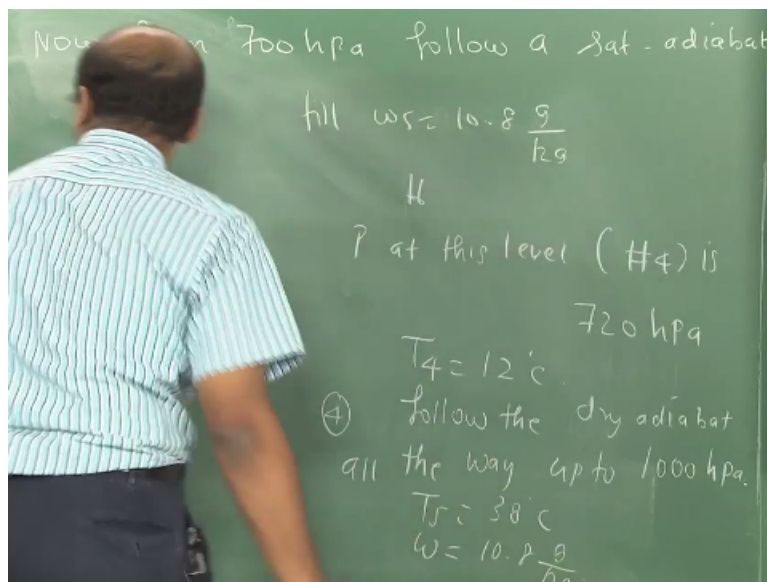 Now 700 hpa follow a sat-adiabat
till ws = 10.8 g/kg
P at this level (#4) is
720 hpa
T4 = 12°C
④ follow the dry adiabat
all the way upto 1000 hpa.
T5 = 38°C
W = 10.8 g/kg